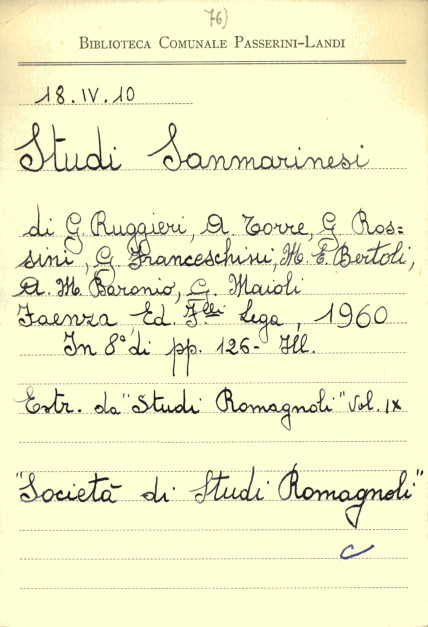 76)
BIBLIOTECA COMUNALE PASSERINI-LANDI
18.IV.10
Studi Sanmarinesi
di G. Ruggieri, A. Torre, G. Ros=
sini, G. Franceschini, M. E. Bertoli,
A. M. Baronio, G. Maioli
Faenza, Ed. F.lli Lega, 1960
In 8° di pp. 126- Ill.
Estr. da "Studi Romagnoli" Vol. IX
"Società di Studi Romagnoli"
C